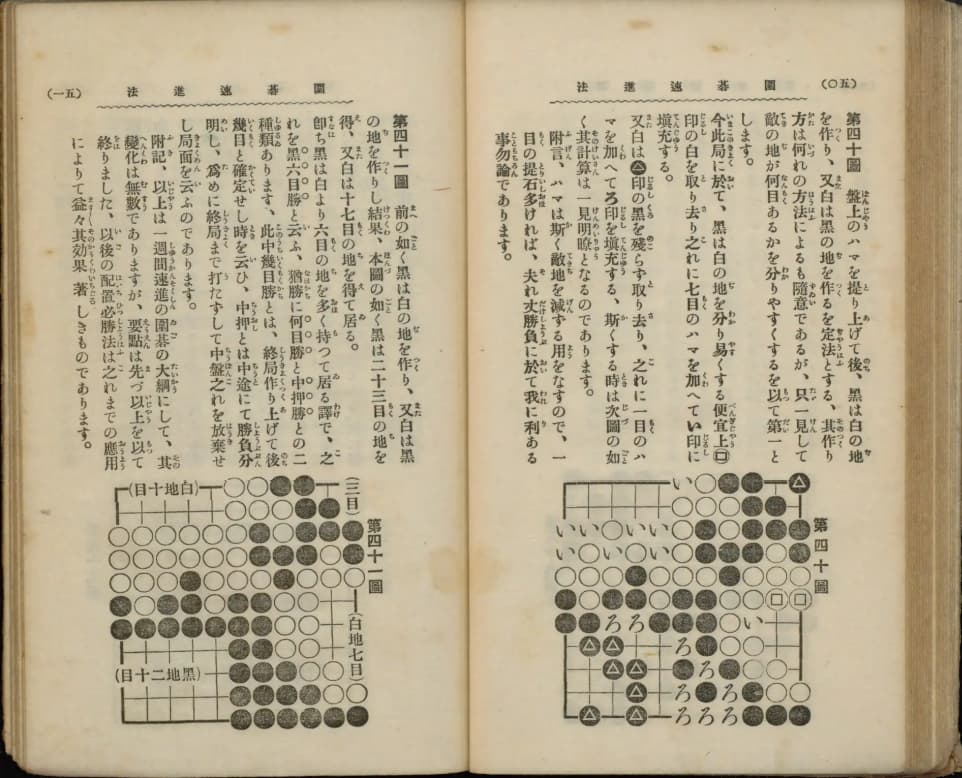 (五〇)
圍碁速進法
第四十圖　盤上のハマを提り上げて後、黑は白の地
を作り、又白は黑の地を作るを定法とする、其作り
方は何れの方法によるも隨意であるが、只一見して
敵の地が何目あるかを分りやすくするを以て第一と
します。
今此局に於て、黑は白の地を分り易くする便宜上回
印の白を取り去り之れに七目のハマを加へてい印に
塡充する。
又白は△印の黑を殘らず取り去り、之れに一目のハ
マを加へてろ印を塡充する、斯くする時は次圖の如
く其計算は一見明瞭となるのであります。
附言、ハマは斯く敵地を減する用をなすので、一
目の提石多ければ、夫れ丈勝負に於て我に利ある
事勿論であります。
第四十圖
い
△
い
い
い
い
い
い
い
ろ
ろ
ろ
い
△
△
△
△
ろ
△
ろ
ろ
△
△
ろ
ろ
ろ
圍碁速進法
(五一)
第四十一圖　前の如く黑は白の地を作り、又白は黑
の地を作りし結果、本圖の如く黑は二十三目の地を
得、又白は十七目の地を得て居る。
卽ち黑は白より六目の地を多く持つて居る譯で、之
れを黑六目勝と云ふ、猶勝に何目勝と中押勝との二
種類あります、此中幾目勝とは、終局作り上げて後
幾目と確定せし時を云ひ、中押とは中途にて勝負分
明し、爲めに終局まで打たずして中盤之れを放棄せ
し局面を云ふのであります。
附記、以上は一週間速進の圍碁の大綱にして、其
變化は無數でありますが、要點は先づ以上を以て
終りました、以後の配置必勝法は之れまでの應用
によりて益々其効果著しきものであります。
第四十一圖
(三目)
(白地十目)
(白地七目)
(黑地二十目)